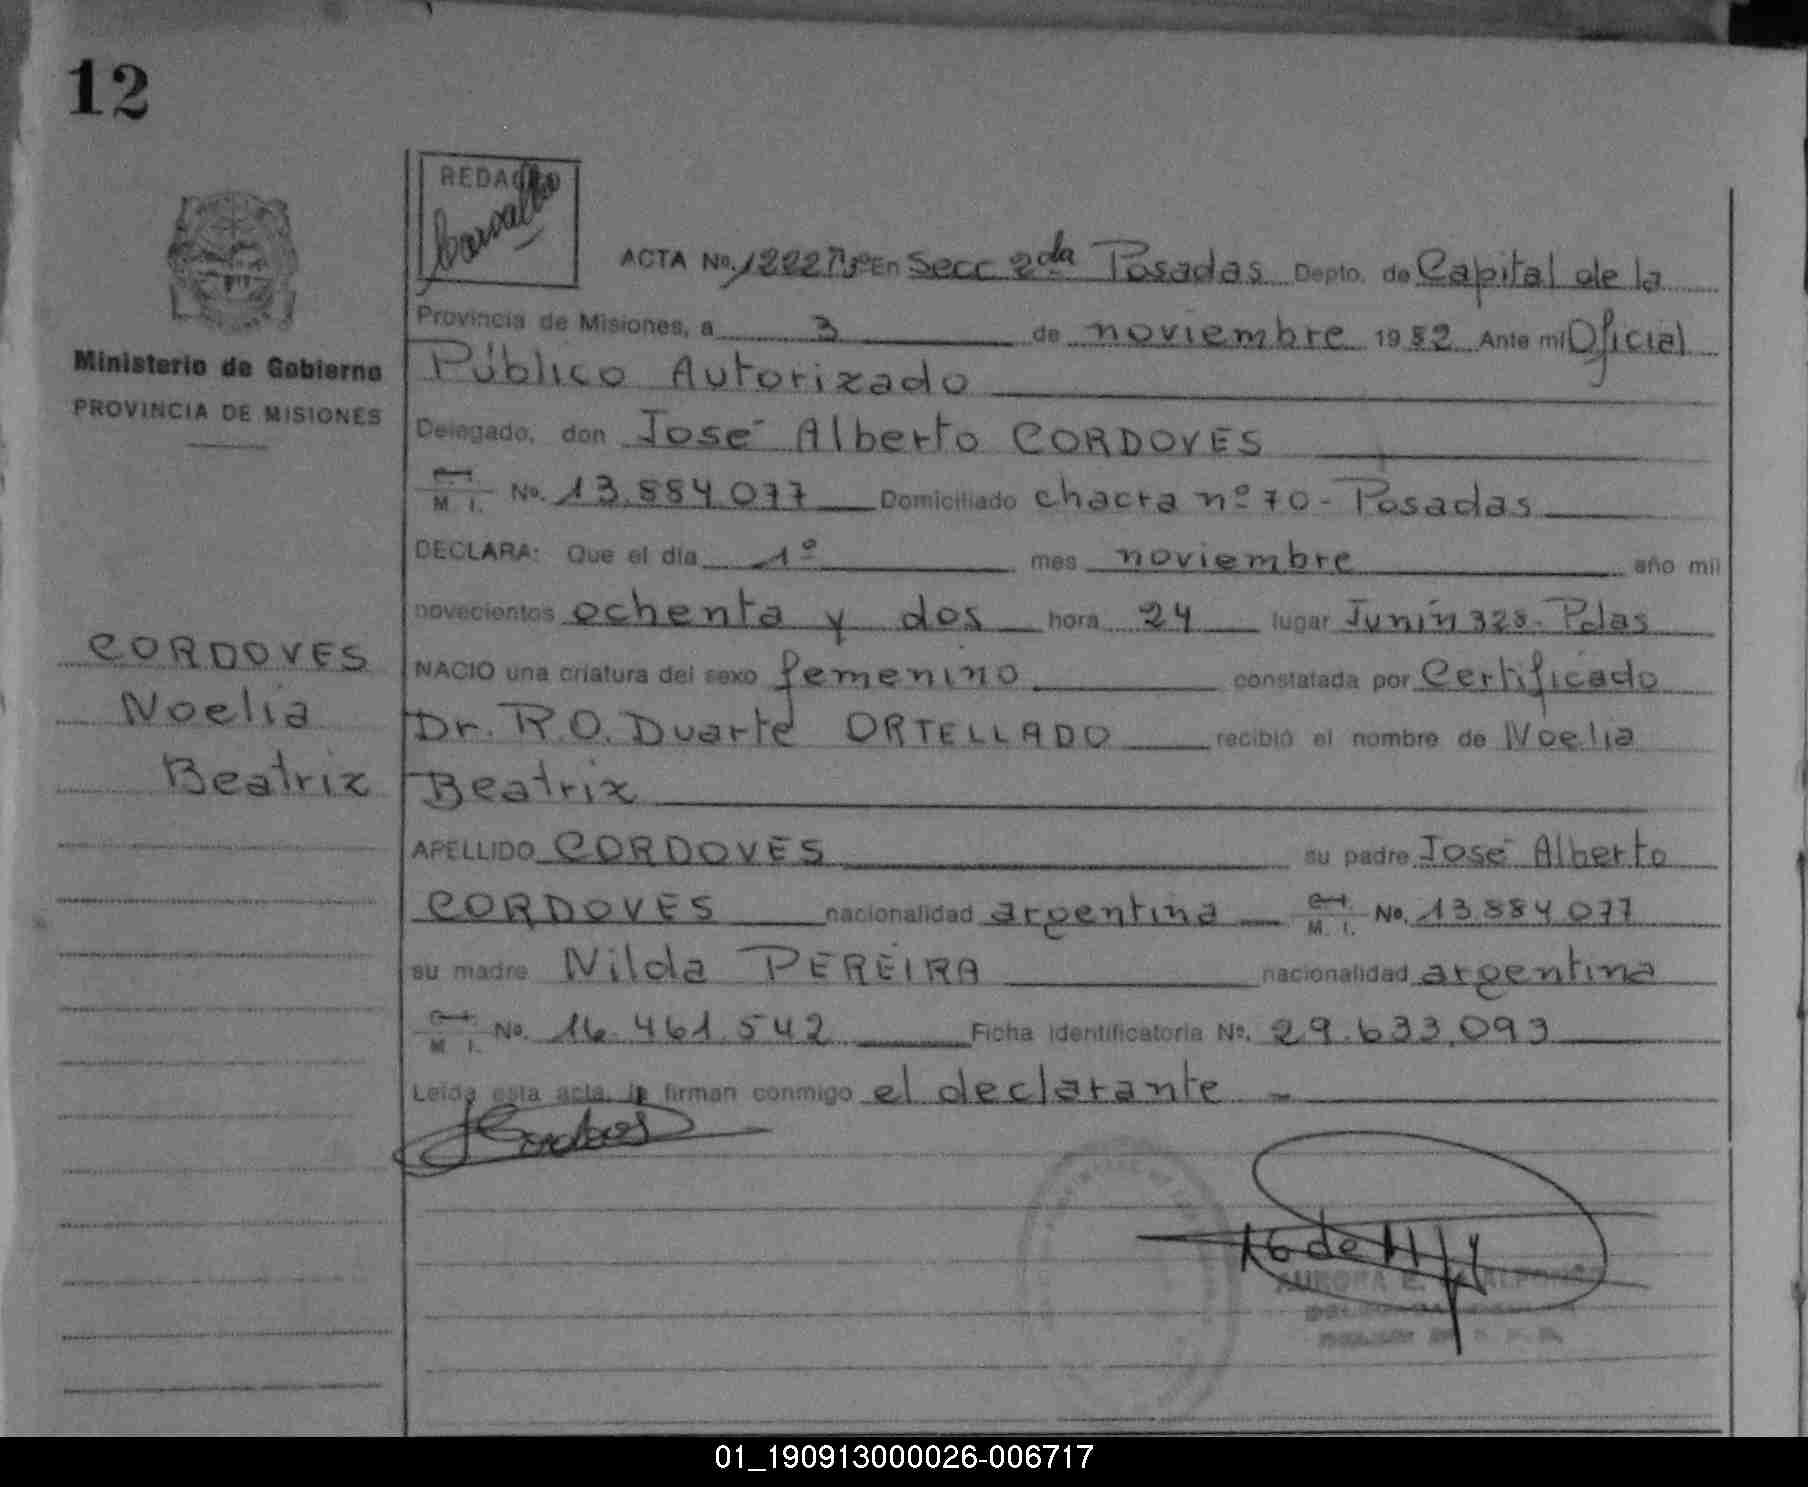 12
REDACTO
Carvallo
ACTA No. 1222 En Secc 2da Posadas Depto. de Capital de la
Provincia de Misiones, a 3 de noviembre 1982 Ante mi Oficial
Ministerio de Gobierno
PROVINCIA DE MISIONES
Público Autorizado
Delegado, don José Alberto CORDOVES
M. I. No. 13.884.077 Domiciliado chacra nº 70 - Posadas
DECLARA: Que el día 1º mes noviembre año mil
novecientos ochenta y dos hora 24 lugar Junín 328. Pdas
CORDOVES
Noelia
Beatriz
NACIO una criatura del sexo femenino constatada por Certificado
Dr. R.O. Duarte ORTELLADO recibió el nombre de Noelia
Beatriz
APELLIDO CORDOVES su padre José Alberto
CORDOVES nacionalidad argentina M. I. No. 13.884.077
su madre Nilda PEREIRA nacionalidad argentina
M. I. No. 16.461.542 Ficha Identificatoria No. 29.633.093
Leída esta acta, la firman conmigo el declarante
AURORA E.
01_190913000026-006717